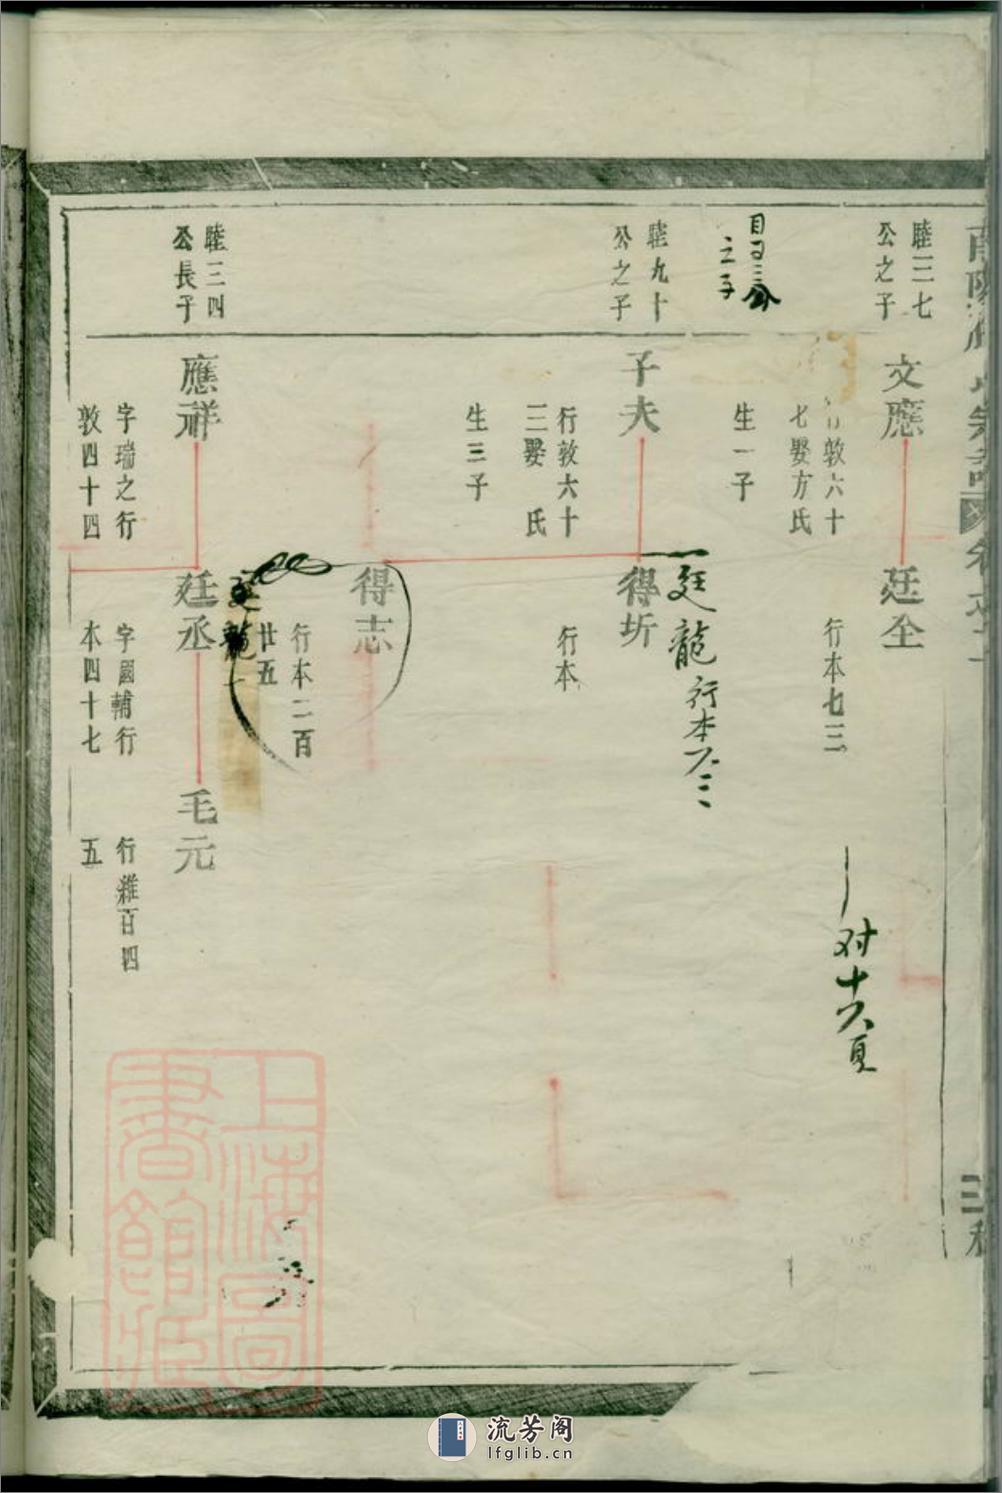 睦三七
公之子
文應
行敦六十
七娶方氏
生一子
廷全
行本七三
对十六頁
之子
睦九十
公之子
子夫
行敦六十
三娶 氏
生三子
廷龍行本八三
得圻
行本
得志
行本二百
廿五
廷龍
睦三四
公長子
應祥
字瑞之行
敦四十四
廷丞
字國輔行
本四十七
毛元
行雜百四
五
上海圖
書館藏
流芳阁
lfglib.cn